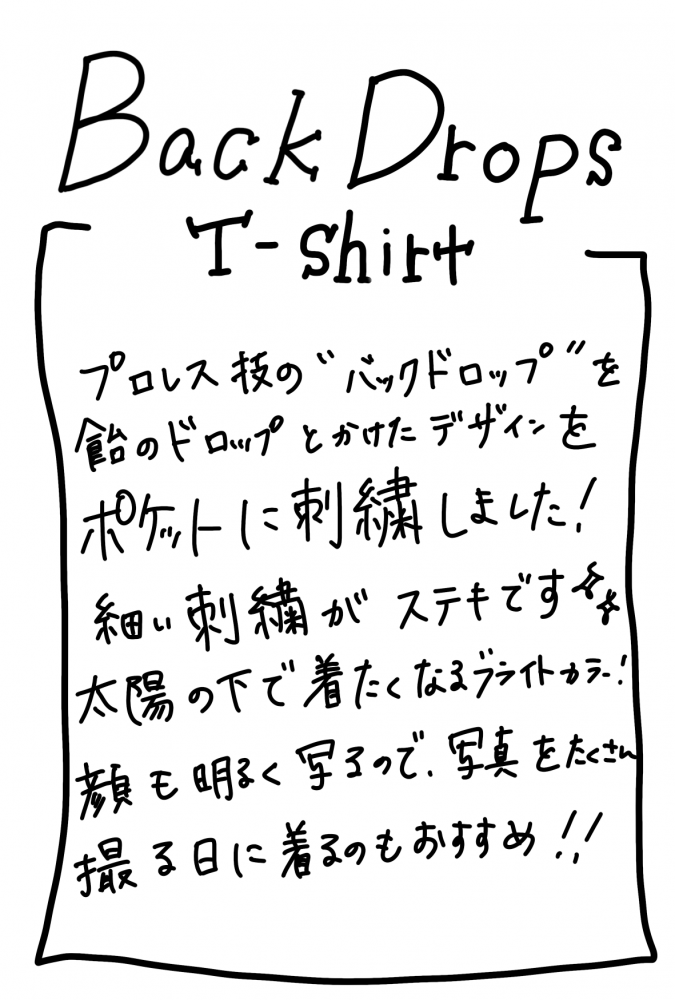 Back Drops
T-shirt
プロレス技の〝バックドロップ〟を
飴のドロップとかけたデザインを
ポケットに刺繍しました!
細い刺繍がステキです
太陽の下で着たくなるブライトカラー!
顔も明るく写るので、写真をたくさん
撮る日に着るのもおすすめ!!